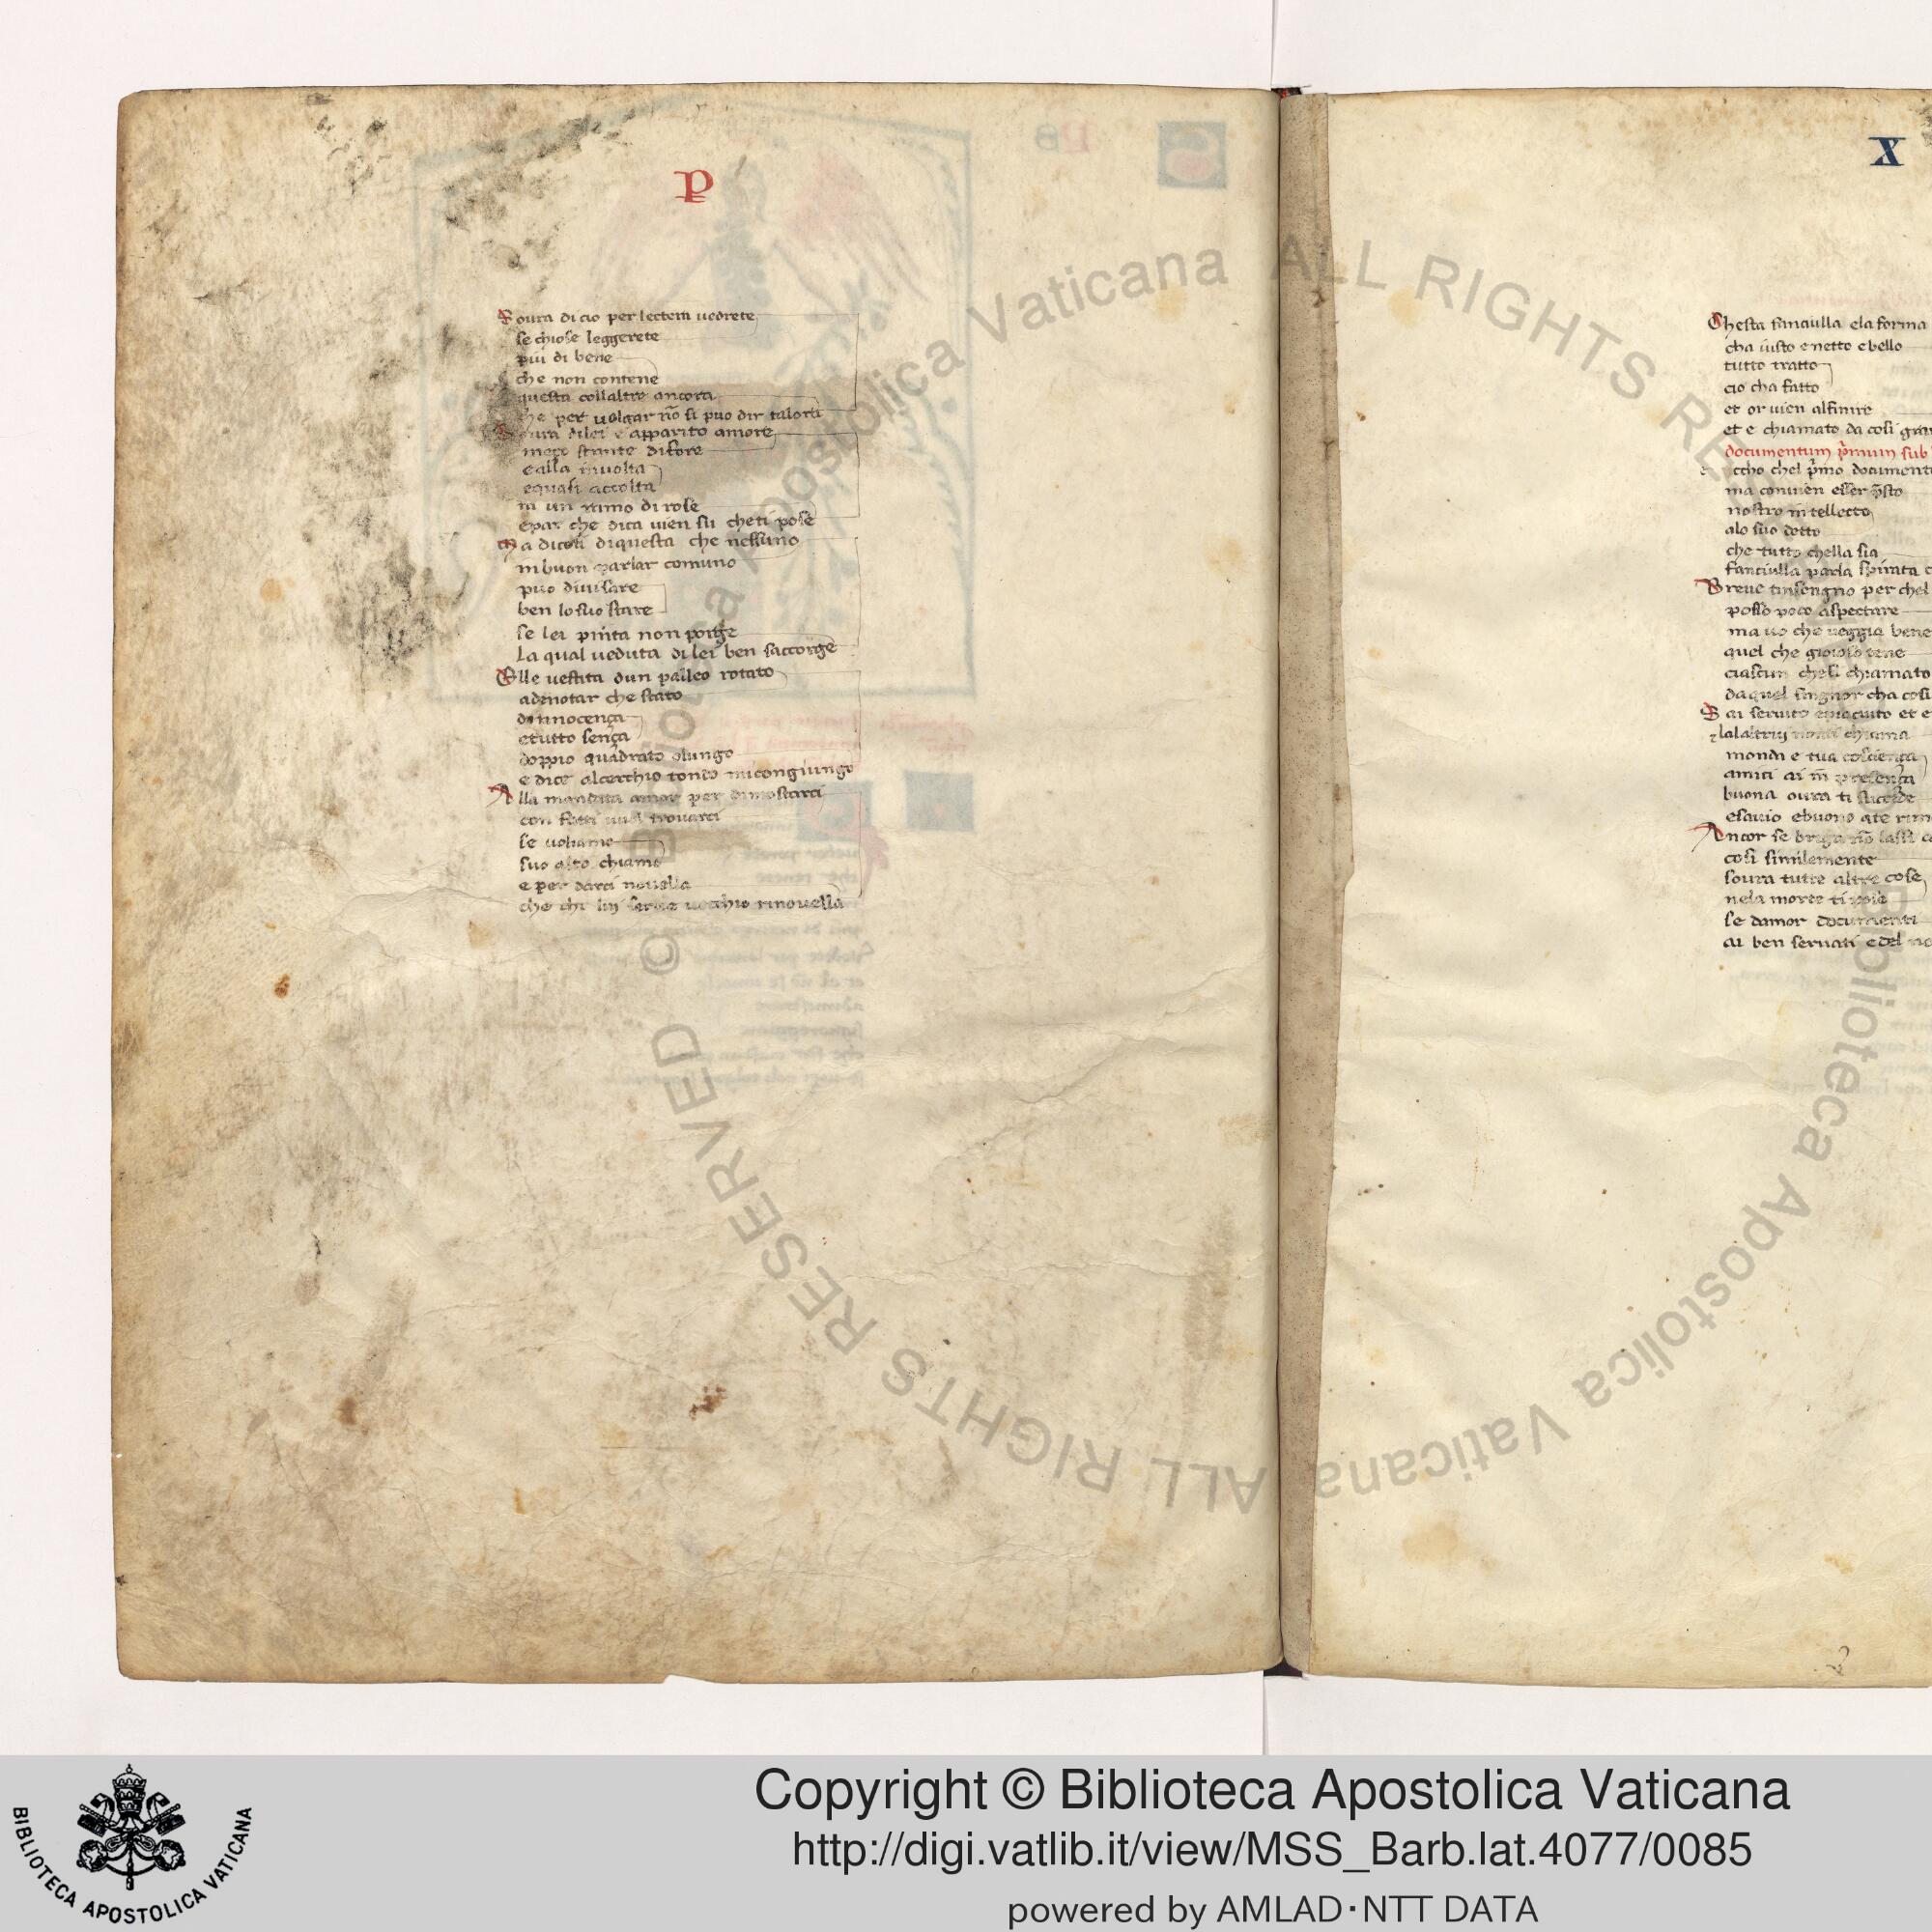 P
Soura di cio per lectera uedrete
se chiose leggerete
piu di bene
che non contene
questa collaltre ancora
che per uolgar nō si puo dir talora
Soura dilei e apparito amore
meço stante difore
ealla inuolta
equasi accolta
in un ramo di rose
epar che dica uien su cheti pose
Ma dicoti diquesta che nessuno
inbuon parlar comuno
puo diuisare
ben losuo stare
se lei pinta non porge
La qual ueduta di lei ben saccorge
Elle uestita dun palleo rotato
adenotar che stato
dinnocença
etutto sença
doppio quadrato olungo
e dice alcerchio tondo micongiungo
Alla mandata amor per dimostrarci
con fatti trouarci
se uoliamo
suo alto chiamo
e per darci nouella
che chi lui serue uecchio rinouella
X
Chesta fanciulla ela forma
cha iusto enetto ebello
tutto tratto
cio cha fatto
et or uien alfinire
et e chiamato da cosi gran
documentum p̄mum sub
ccho chel p̄mo document
ma conuien esser
nostro intellecto
alo suo detto
che tutto chella sia
fanciulla parla spirata
Breue tinsengno per chel
posso poco aspectare
ma uo che ueggia bene
quel che gioioso tene
ciascun cheli chiamato
da quel singnor cha cosi
Sai seruito epiaciuto et
lalaltrui chiama
monda e tua coscienga
amici ai in presença
buona oura ti
esauio ebuono ate
Ancor se briga nō lassi
cosi similemente
soura tutte altre cose
nela morte ti
se damor documenti
ai ben seruati edel
© Biblioteca Apostolica Vaticana ALL RIGHTS RESERVED
Biblioteca Apostolica Vaticana ALL RIGHTS RESERVED
BIBLIOTECA APOSTOLICA VATICANA
Copyright © Biblioteca Apostolica Vaticana
http://digi.vatlib.it/view/MSS_Barb.lat.4077/0085
powered by AMLAD·NTT DATA